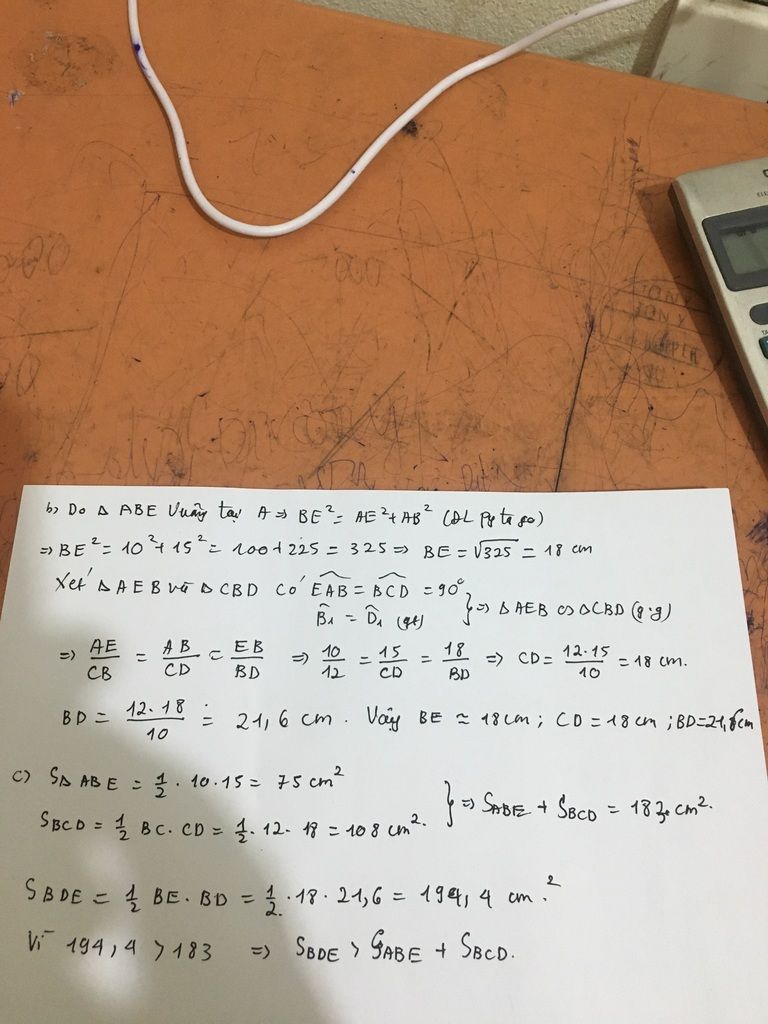 TONY
TONY
b) Do Δ ABE Vuông tại A ⇒ BE² = AE² + AB² (ĐL Pytago)
⇒ BE² = 10² + 15² = 100 + 225 = 325 ⇒ BE = √325 = 18 cm
Xét Δ AEB và Δ CBD Có EAB = BCD = 90°
B₁ = D₁ (gt) } ⇒ Δ AEB ∽ Δ CBD (g.g)
⇒ AE/CB = AB/CD = EB/BD ⇒ 10/12 = 15/CD = 18/BD ⇒ CD = 12.15/10 = 18 cm.
BD = 12.18/10 = 21,6 cm. Vậy BE ≈ 18cm ; CD = 18cm ; BD = 21,6cm
c) SΔ ABE = 1/2 . 10 . 15 = 75 cm²
SBCD = 1/2 BC . CD = 1/2 . 12 . 18 = 108 cm². } ⇒ SABE + SBCD = 183 cm².
SBDE = 1/2 BE . BD = 1/2 . 18 . 21,6 = 194,4 cm².
Vì 194,4 > 183 ⇒ SBDE > SABE + SBCD.